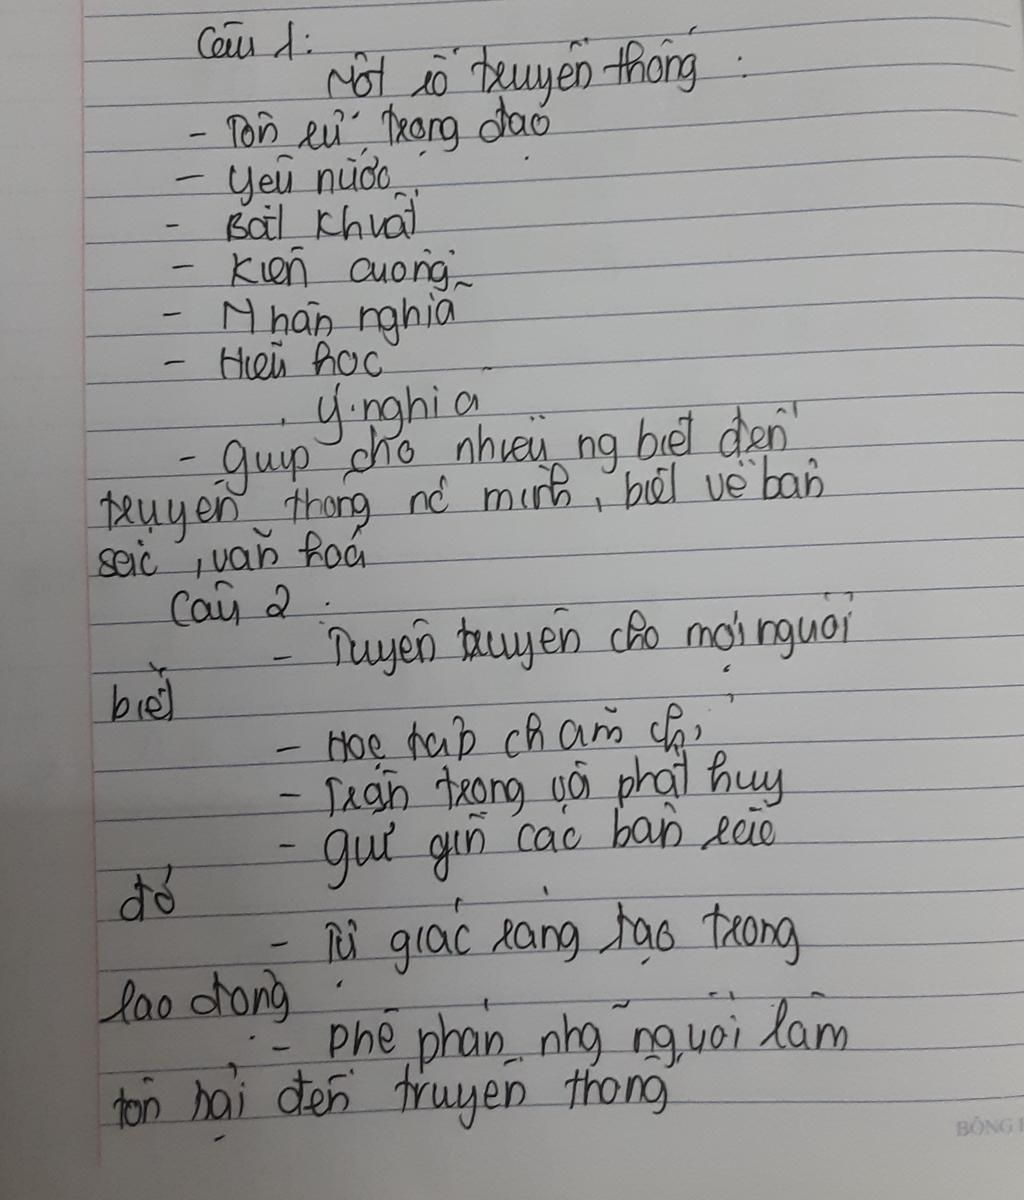 Câu 1:
Một số truyền thống :
- Tôn sư trọng đạo
- Yêu nước
- Bất khuất
- Kiên cường
- Nhân nghĩa
- Hiếu học
Ý nghĩa
- Giúp cho nhiều ng biết đến
truyền thống nc mình, biết về bản
sắc, văn hoá
Câu 2:
- Tuyên truyền cho mọi người
biết
- Học tập chăm chỉ
- Trân trọng và phát huy
- giữ gìn các bản sắc
đó
- Tự giác sáng tạo trong
lao động
- phê phán nhg người làm
tổn hại đến truyền thống
BÔNG